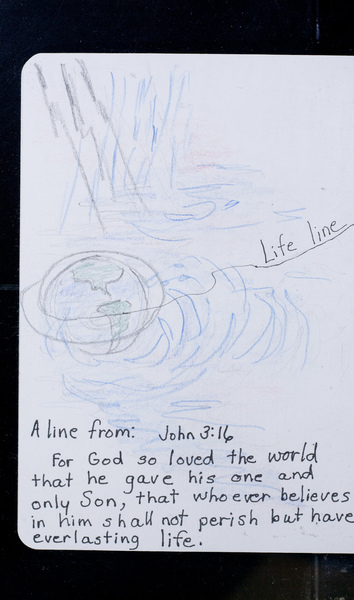 Life line
A line from: John 3:16
For God so loved the world
that he gave his one and
only Son, that whoever believes
in him shall not perish but have
everlasting life.